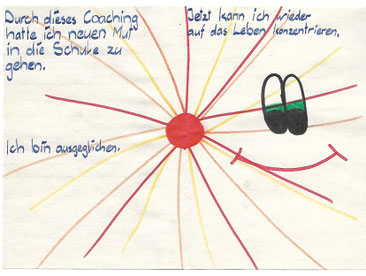 Durch dieses Coaching
hatte ich neuen Mut
in die Schule zu
gehen.
Jetzt kann ich wieder
auf das Leben konzentrieren.
Ich bin ausgeglichen.